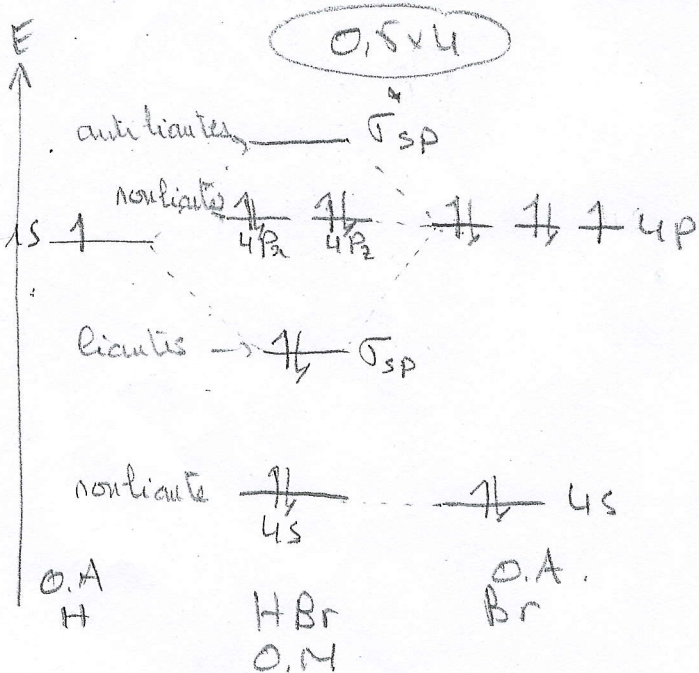 E
0,5x4
antiliantes σ*sp
nonliantes
1s 4Px 4Pz 4P
liantes σsp
nonliante 4s 4s
O.A
H
HBr
O.M
O.A.
Br